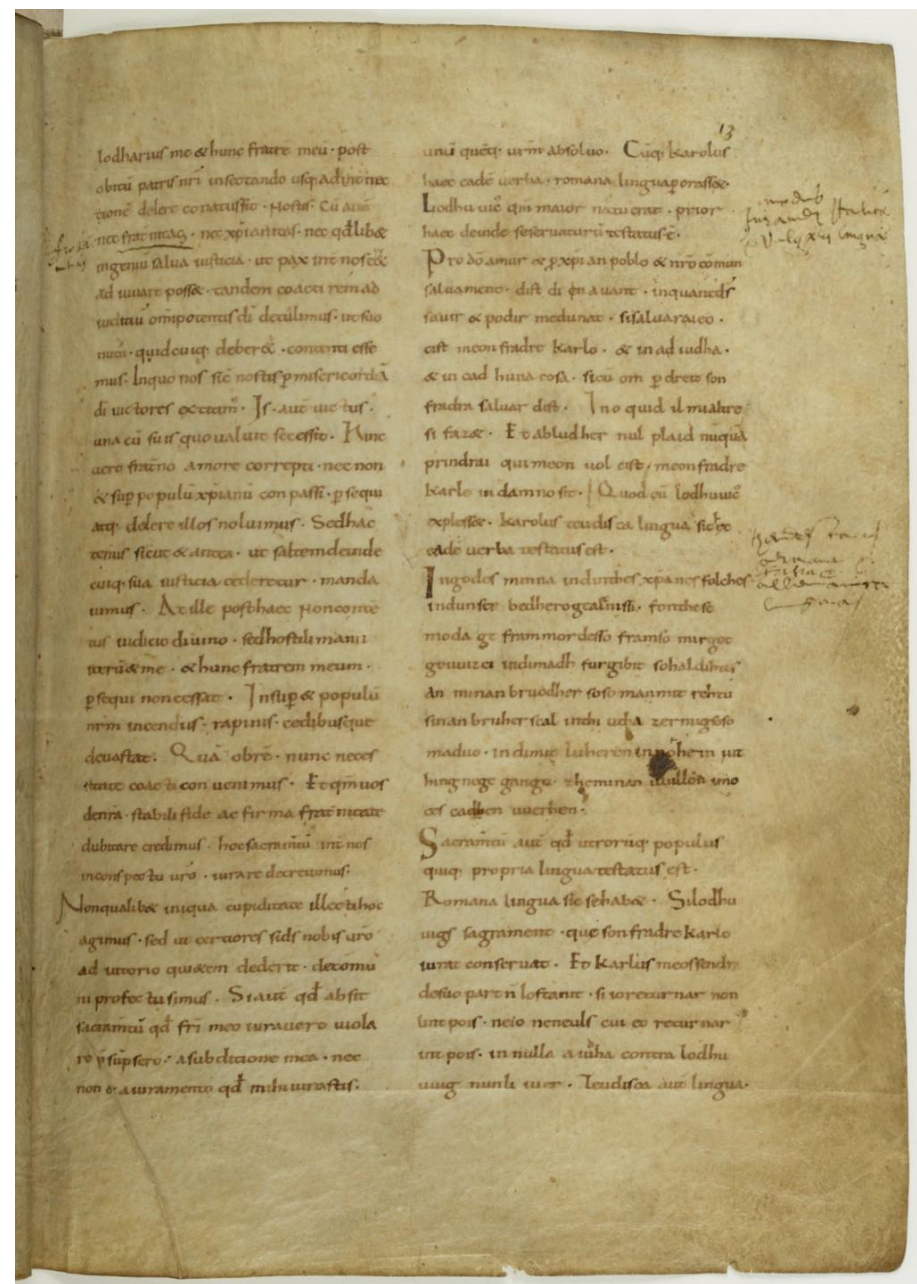 13
lodharius me & hunc fratrē meū · post
obitū patris nr̄i insectando usq; ad int̄nec
cionē delere conatus sit · nostis · Cū autē
nec frat̄nitas · nec xp̄ianitas · nec qd̄lib&
ingeniū salua iusticia · ut pax int̄ nos ēē&
ad iuuare poss& · tandem coacti rem ad
iuditiū om̄ipotentis dī detulimus · ut suo
nutu · quid cuiq; deber& · contenti esse
mus · In quo nos sic̄ nostis p̱ misericordiā
dī uictores extitim̄ · Is · aut̄ uictus ·
una cū suis quo ualuit secessit · Hinc
uero frat̄no amore correpti · nec non
& sup̱ populū xp̄ianū conpassi · p̱sequi
atq; delere illos noluimus · Sed hac
tenus sicut & antea · ut saltem deinde
cuiq; sua iusticia cederetur · manda
uimus · At ille post haec non conten
tus iudicio diuino · sed hostili manu
iterū & me · & hunc fratrem meum ·
p̱sequi non cessat · Insup̱ & populū
nr̄m incendiis · rapinis · cedibusque
deuastat · Quā obrē · nunc neces
sitate coacti conuenimus · Et qm̄ uos
de nr̄a · stabili fide ac firma frat̄nitate
dubitare credimus · hoc sacram̄tū int̄ nos
in conspectu ur̄o · iurare decreuimus ·
Non qualib& iniqua cupiditate illecti hoc
agimus · sed ut certiores
ad iutorio quietem dederit · de comu
ni profectu simus · Si aut̄ qd̄ absit
sacram̄tū qd̄ fr̄i meo iurauero uiola
re p̄sūpsero · a subditione mea · nec
non & a iuramento qd̄ mihi iurastis ·
unū quēq; ur̄m absoluo · Cūq; karolus
haec eadē uerba · romana lingua p̱orass& ·
Lodhuuic̄ qm̄ maior natu erat · prior
haec deinde se seruaturū testatus ē ·
Pro dō amur & p̱ xp̄ian poblo & nr̄o cōmun
saluament · dist di en auant · inquantdš
sauir & podir medunat · sisaluaraieo ·
cist meon fradre Karlo · & in ad iudha ·
& in cad huna cosa · sicū om p̱ dreit son
fradra saluar dist · Ino quid il mialtre
si faz& · Et abludher nul plaid nūquā
prindrai qui meon uol cist · meon fradre
Karle in damno sit · Quod cū lodhuuic̄
explesse& · karolus teudisca lingua sic̄ ec
eadē uerba testatus est ·
Ingodes minna indinthes xp̄anes folches
indunser bedhero gealtnissi · fonthese
moda ge frammordesso framso mirgot
geuuizci indimadh furgibit sohaldihtes
an minan bruodher soso manmit rehtu
sinan bruher scal inthi utha zermigsoso
maduo · indimit luheren innohein iut
hing nege gango · zheminan uuillon imo
ces cadhen uuerhen ·
Sacram̄tū aut̄ qd̄ utrorūq; populus
quiq; propria lingua testatus est ·
Romana lingua sic sehab& · Silodhu
uigs sagrament · que son fradre karlo
iurat conseruat · Et karlus meossendr̄
desuo part n̄ lostanit · si ioreturnar non
lint pois · neio neneuls cui eo returnar
int pois · in nulla aiuha contra lodhu
uuig nunli iuer · Teudisca aut̄ lingua ·